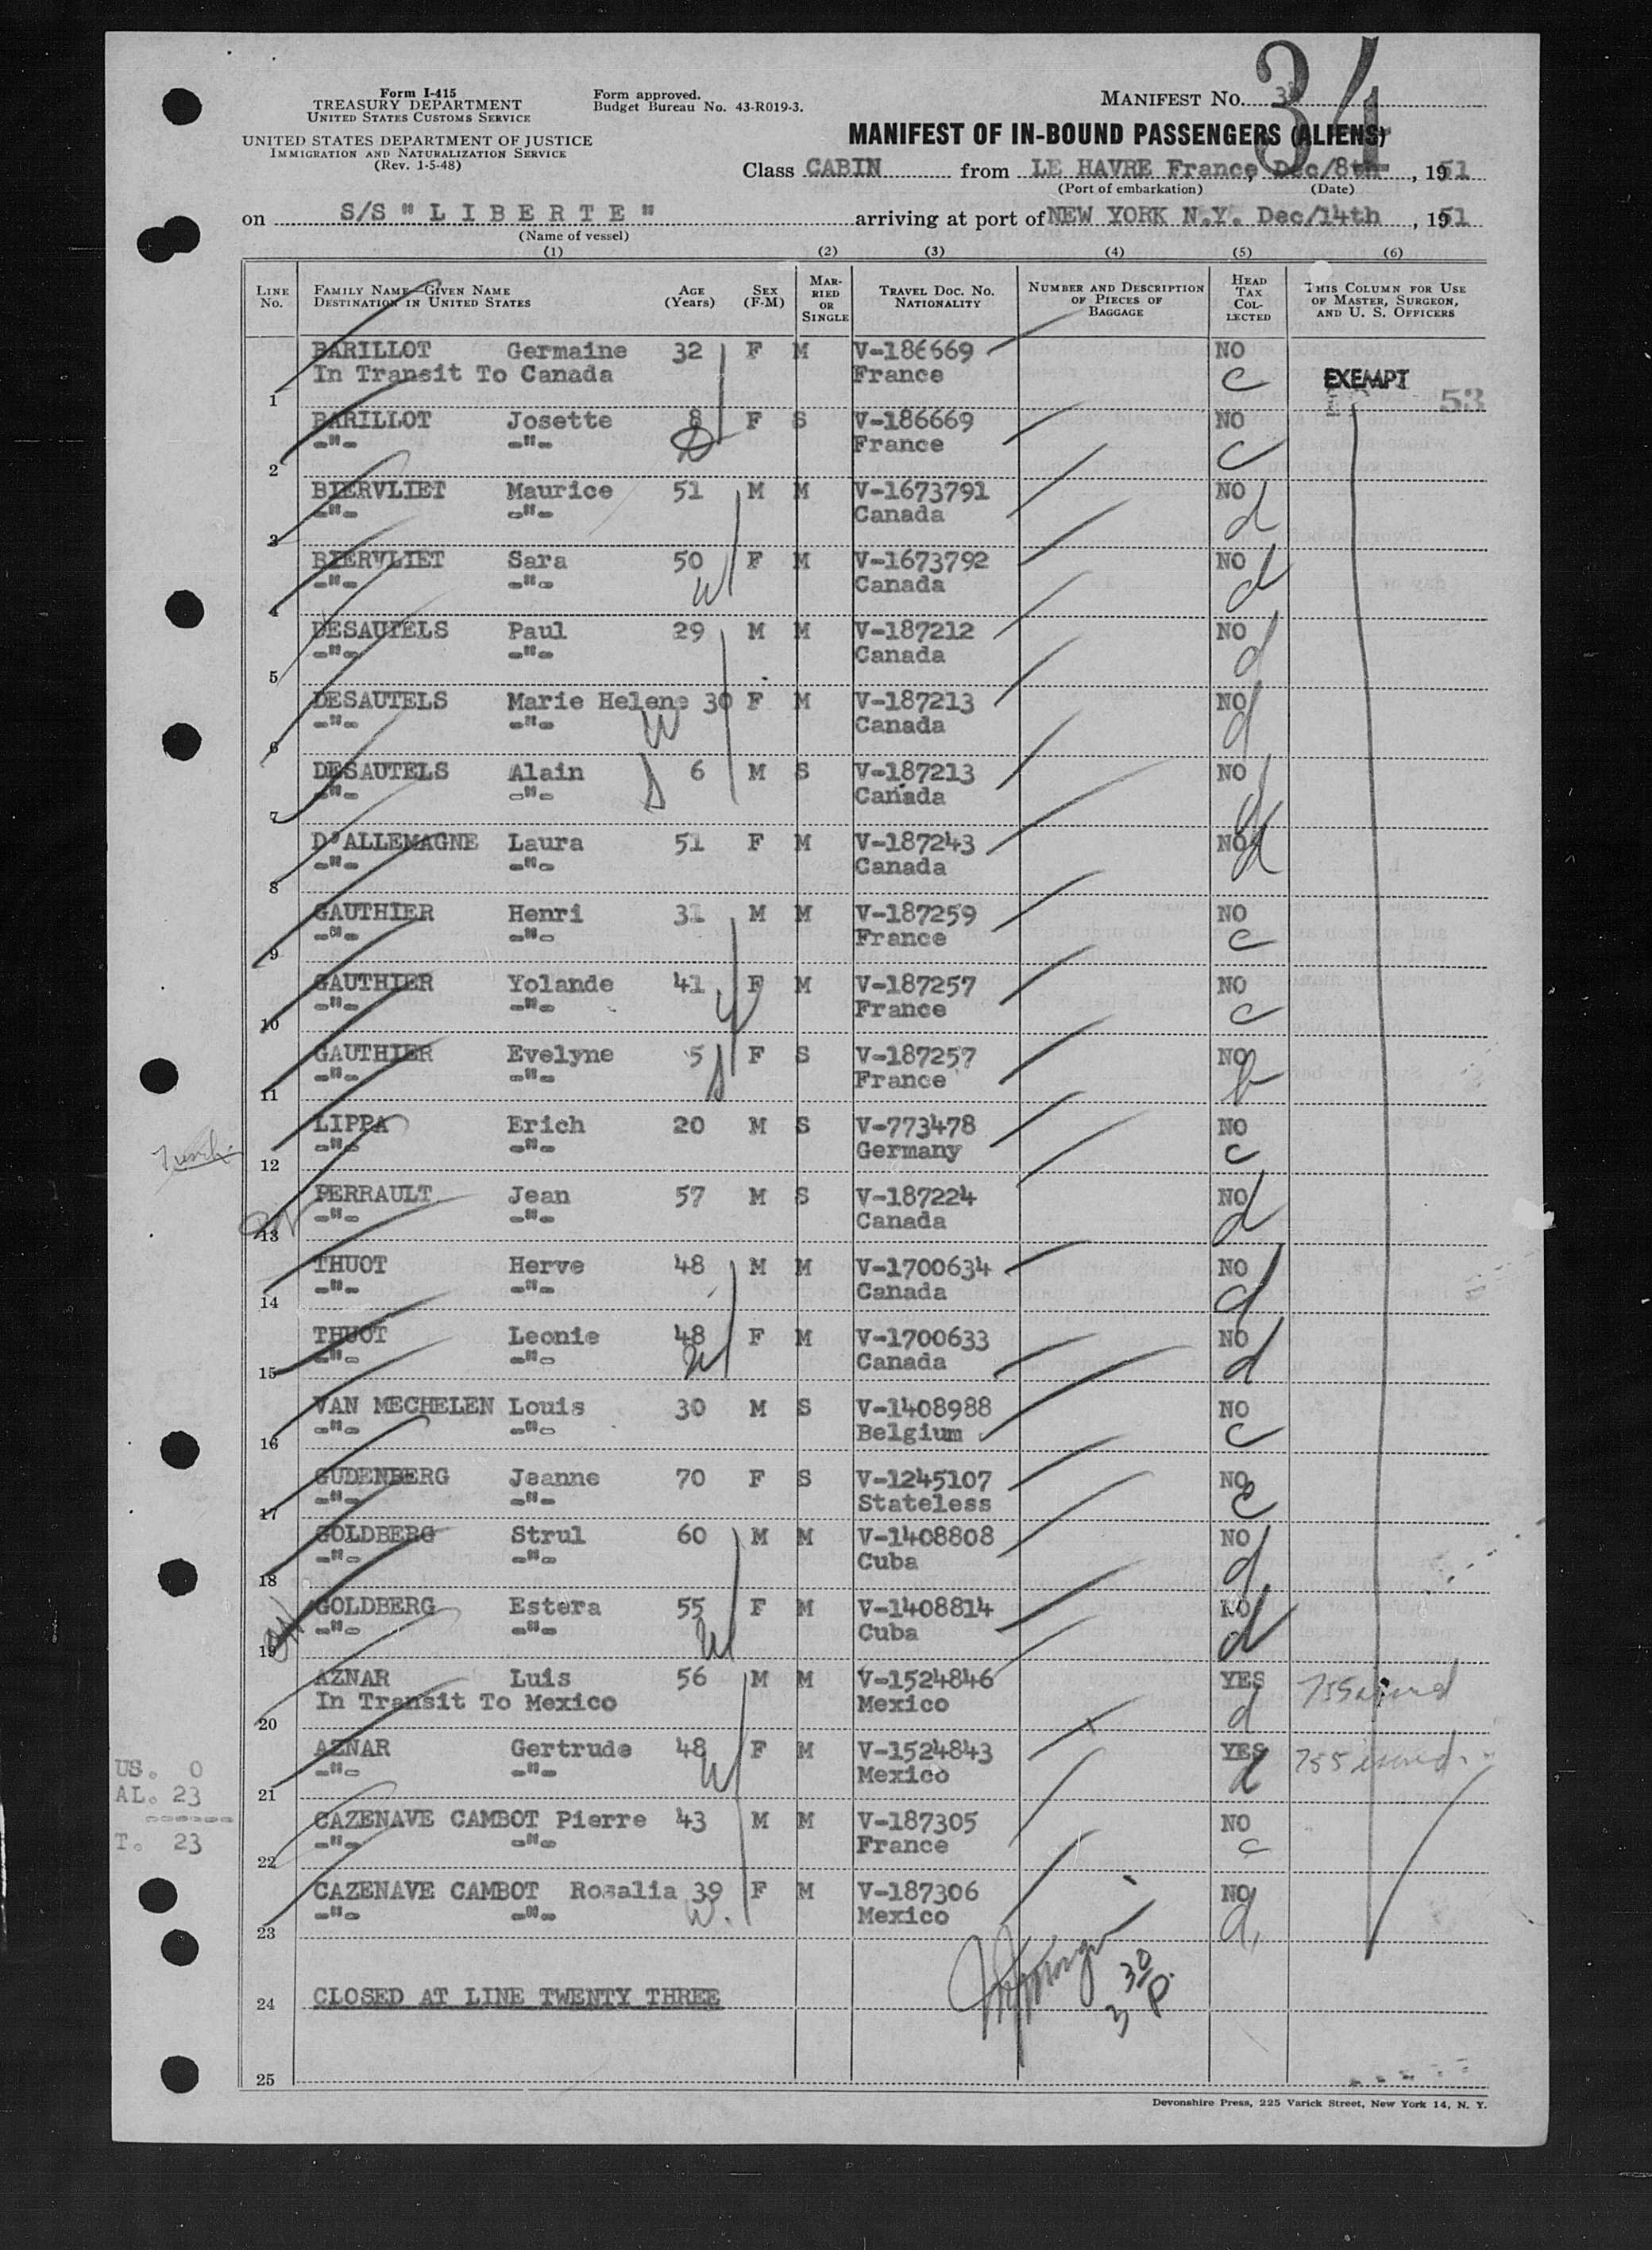 34
Form I-415
TREASURY DEPARTMENT
UNITED STATES CUSTOMS SERVICE
UNITED STATES DEPARTMENT OF JUSTICE
IMMIGRATION AND NATURALIZATION SERVICE
(Rev. 1-5-48)
Form approved.
Budget Bureau No. 43-R019-3.
MANIFEST NO.
MANIFEST OF IN-BOUND PASSENGERS (ALIENS)
Class CABIN from LE HAVRE France, Dec/8th , 1951
(Port of embarkation) (Date)
on S/S "LIBERTE" arriving at port of NEW YORK N.Y. Dec/14th , 1951
(Name of vessel)
(1) (2) (3) (4) (5) (6)
LINE No. FAMILY NAME—GIVEN NAME DESTINATION IN UNITED STATES AGE (Years) SEX (F-M) MARRIED OR SINGLE TRAVEL DOC. NO. NATIONALITY NUMBER AND DESCRIPTION OF PIECES OF BAGGAGE HEAD TAX COLLECTED THIS COLUMN FOR USE OF MASTER, SURGEON, AND U. S. OFFICERS
BARILLOT Germaine 32 F M V-186669 NO
In Transit To Canada France c EXEMPT
1 53
BARILLOT Josette 8 F S V-186669 NO
-"- -"- France c
2
BIERVLIET Maurice 51 M M V-1673791 NO
-"- -"- Canada d
3
BIERVLIET Sara 50 F M V-1673792 NO
-"- -"- W Canada d
4
DESAUTELS Paul 29 M M V-187212 NO
-"- -"- Canada d
5
DESAUTELS Marie Helene 30 F M V-187213 NO
-"- -"- W Canada d
6
DESAUTELS Alain 6 M S V-187213 NO
-"- -"- Canada d
7
D'ALLEMAGNE Laura 51 F M V-187243 NO
-"- -"- Canada d
8
GAUTHIER Henri 31 M M V-187259 NO
-"- -"- France c
9
GAUTHIER Yolande 41 F M V-187257 NO
-"- -"- W France c
10
GAUTHIER Evelyne 5 F S V-187257 NO
-"- -"- France
11
LIPPA Erich 20 M S V-773478 NO
-"- -"- Germany c
12
PERRAULT Jean 57 M S V-187224 NO
-"- -"- Canada d
13
THUOT Herve 48 M M V-1700634 NO
-"- -"- Canada d
14
THUOT Leonie 48 F M V-1700633 NO
-"- -"- W Canada d
15
VAN MECHELEN Louis 30 M S V-1408988 NO
-"- -"- Belgium c
16
GUDENBERG Jeanne 70 F S V-1245107 NO
-"- -"- Stateless c
17
GOLDBERG Strul 60 M M V-1408808 NO
-"- -"- Cuba d
18
GOLDBERG Estera 55 F M V-1408814 NO
-"- -"- W Cuba d
19
AZNAR Luis 56 M M V-1524846 YES
In Transit To Mexico Mexico d
20
AZNAR Gertrude 48 F M V-1524843 YES
-"- -"- W Mexico d
21
US. 0
AL. 23
------
T. 23
CAZENAVE CAMBOT Pierre 43 M M V-187305 NO
-"- -"- France c
22
CAZENAVE CAMBOT Rosalia 39 F M V-187306 NO
-"- -"- W. Mexico d
23
3 30 P.
24 CLOSED AT LINE TWENTY THREE
25
Devonshire Press, 225 Varick Street, New York 14, N. Y.